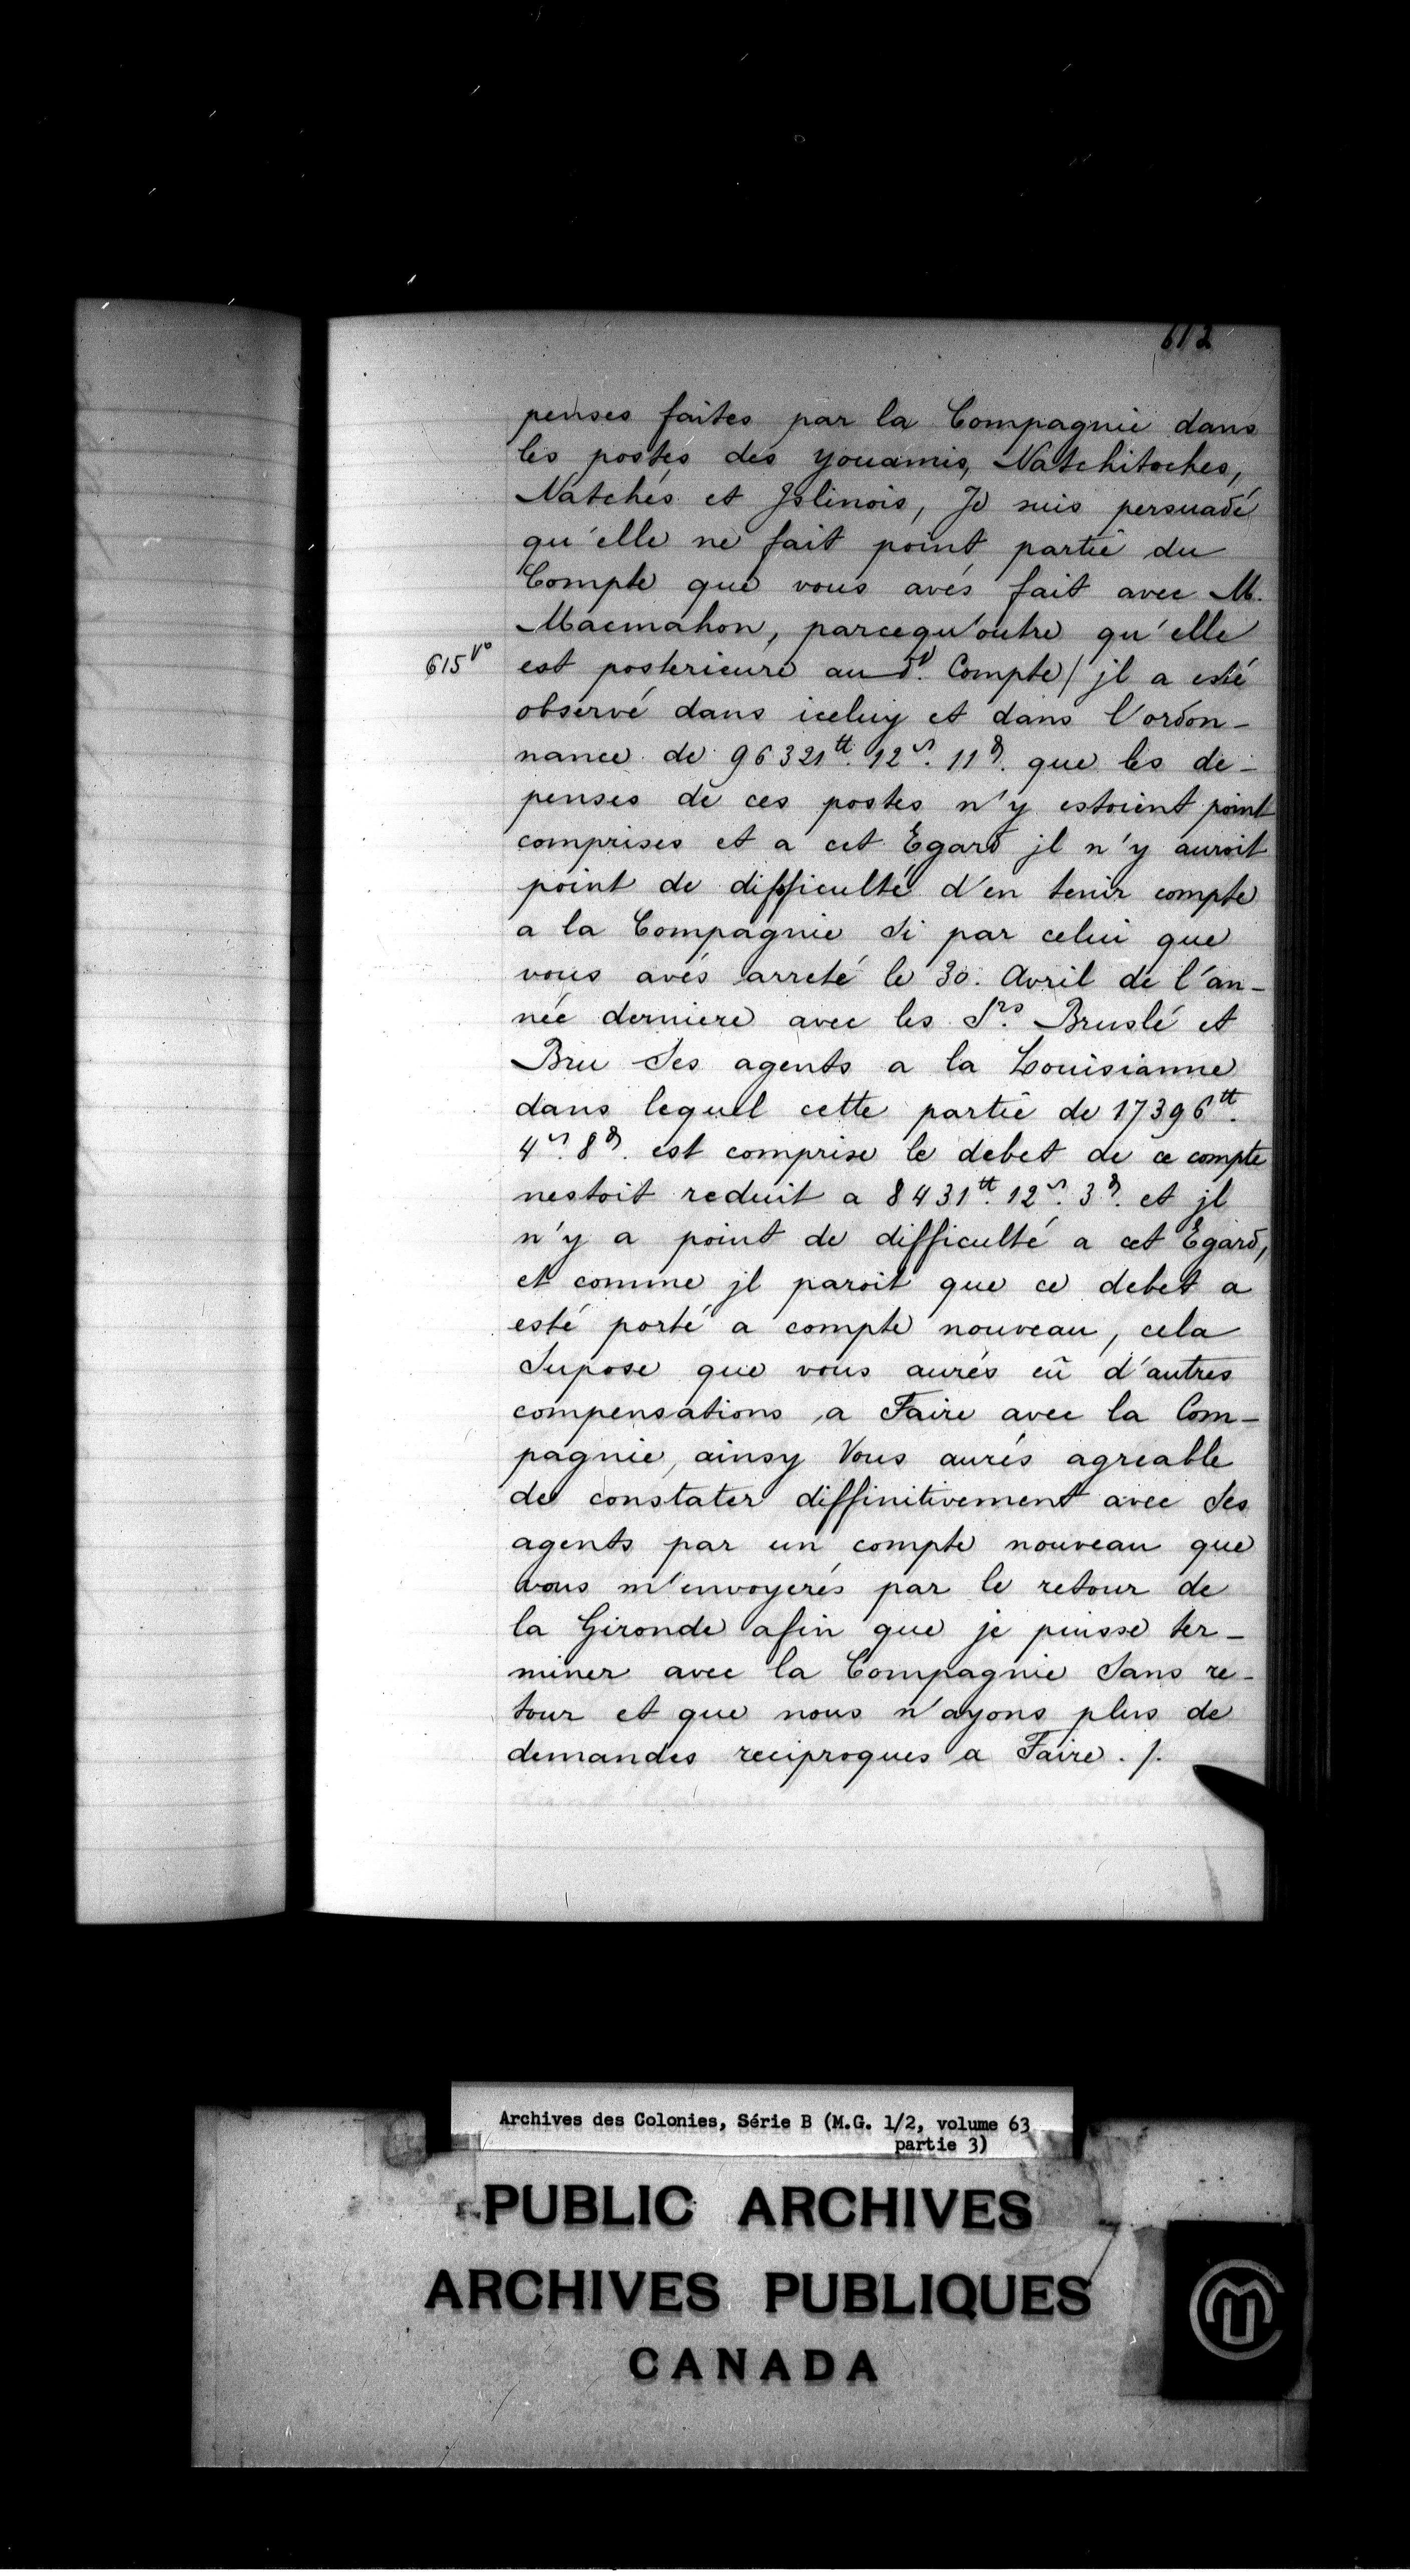 612
penses faites par la Compagnie dans
les postes des youamis, Natchitoches,
Natchés et Jslinois, Je suis persuadé
qu'elle ne fait point partie du
Compte que vous avés fait avec M.
Macmahon, parcequ'outre qu'elle
615 v°
est posterieure au d.t Compte / jl a esté
observé dans iceluy et dans l'ordon-
nance de 96321tt. 12s. 11d. que les de-
penses de ces postes n'y estoient point
comprises et a cet Egard jl n'y auroit
point de difficulté d'en tenir compte
a la Compagnie Si par celui que
vous avés arreté le 30. Avril de l'an-
née derniere avec les S.rs Bruslé et
Bru Ses agents a la Louisianne
dans lequel cette partie de 17396tt.
4s. 8d. est comprise le debet de ce compte
nestoit reduit a 8431tt. 12s. 3d. et jl
n'y a point de difficulté a cet Egard,
et comme jl paroit que ce debet a
esté porté a compte nouveau, cela
Supose que vous aurés eû d'autres
compensations a Faire avec la Com-
pagnie, ainsy Vous aurés agreable
de constater diffinitivement avec Ses
agents par un compte nouveau que
vous m'envoyerés par le retour de
la Gironde afin que je puisse ter-
miner avec la Compagnie Sans re-
tour et que nous n'ayons plus de
demandes reciproques a Faire. /.
Archives des Colonies, Série B (M.G. 1/2, volume 63
partie 3)
PUBLIC ARCHIVES
ARCHIVES PUBLIQUES
CANADA